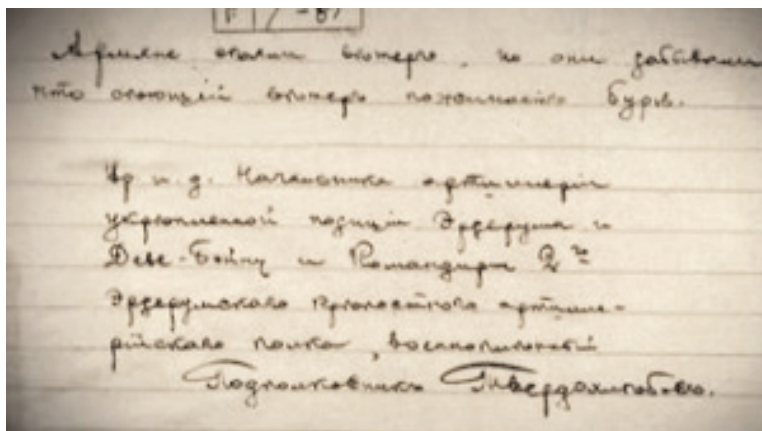 Армяне сеяли ветеръ, но они забывали
что сеющий ветеръ пожинаетъ бурю.
Вр. и. д. Начальника артиллеріи
укрѣпленной позиціи Эрзерума и
Деве-Бойну и Командиръ 2го
Эрзерумскаго крѣпостного артилле-
рійскаго полка, военноплѣнный
Подполковникъ Твердохлѣбовъ.